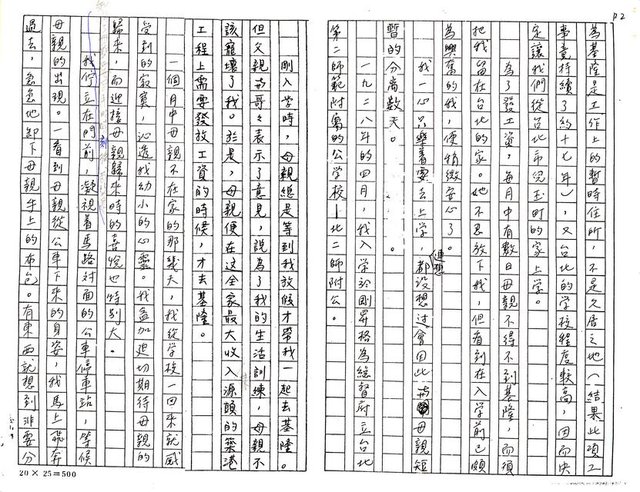 P2
為基隆是工作上的暫時住所，不是久居之地（結果此項工
事竟持續了約十七年），又台北的學校程度較高，因而決
定讓我們從了台北市兒玉町的家上學。
為了發工資，每月有數日母親不得不到基隆，而須
把我留在台北的家。她不忍放下我，但看到在入學前已頗
為興奮的我，便稍微安心了。
我一心只樂著要去上學，都沒想過會因此與母親短
連想
暫的分离数天。
一九二八年的四月，我入学於剛昇格為總督府立台北
第二師範附屬的公学校—北二師附公。
剛入学時，母親總是等到我放假才帶我一起去基隆。
但父親與哥々表示了意見，說為了我的生活訓練，母親不
該寵壞了我。於是，母親便在這全家最大收入源頭的築港
工程上需要發放工資的時候，才去基隆。
一個月中母親不在家的那幾天，我從学校一回來就感
受到的寂寞，沁透我幼小的心靈。我益加迫切期待母親的
歸來，而迎接母親歸來時的喜悅也特別大。
我佇立在門前，凝視着馬路対面的公車停車站，等候
母親的出現。一看到母親從公車下來的身姿，我馬上飛奔
過去，急急地卸下母親手上的布包。有東西就想到非要分
20×25＝500